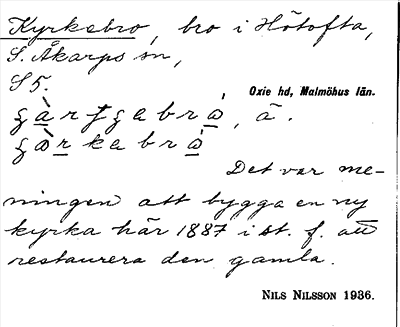 Kyrkebro, bro i Hötofta,
S. Åkarps sn,
S 5.
Oxie hd, Malmöhus län.
Det var me-
ningen att bygga en ny
kyrka här 1887 i st. f. att
restaurera den gamla.
NILS NILSSON 1936.